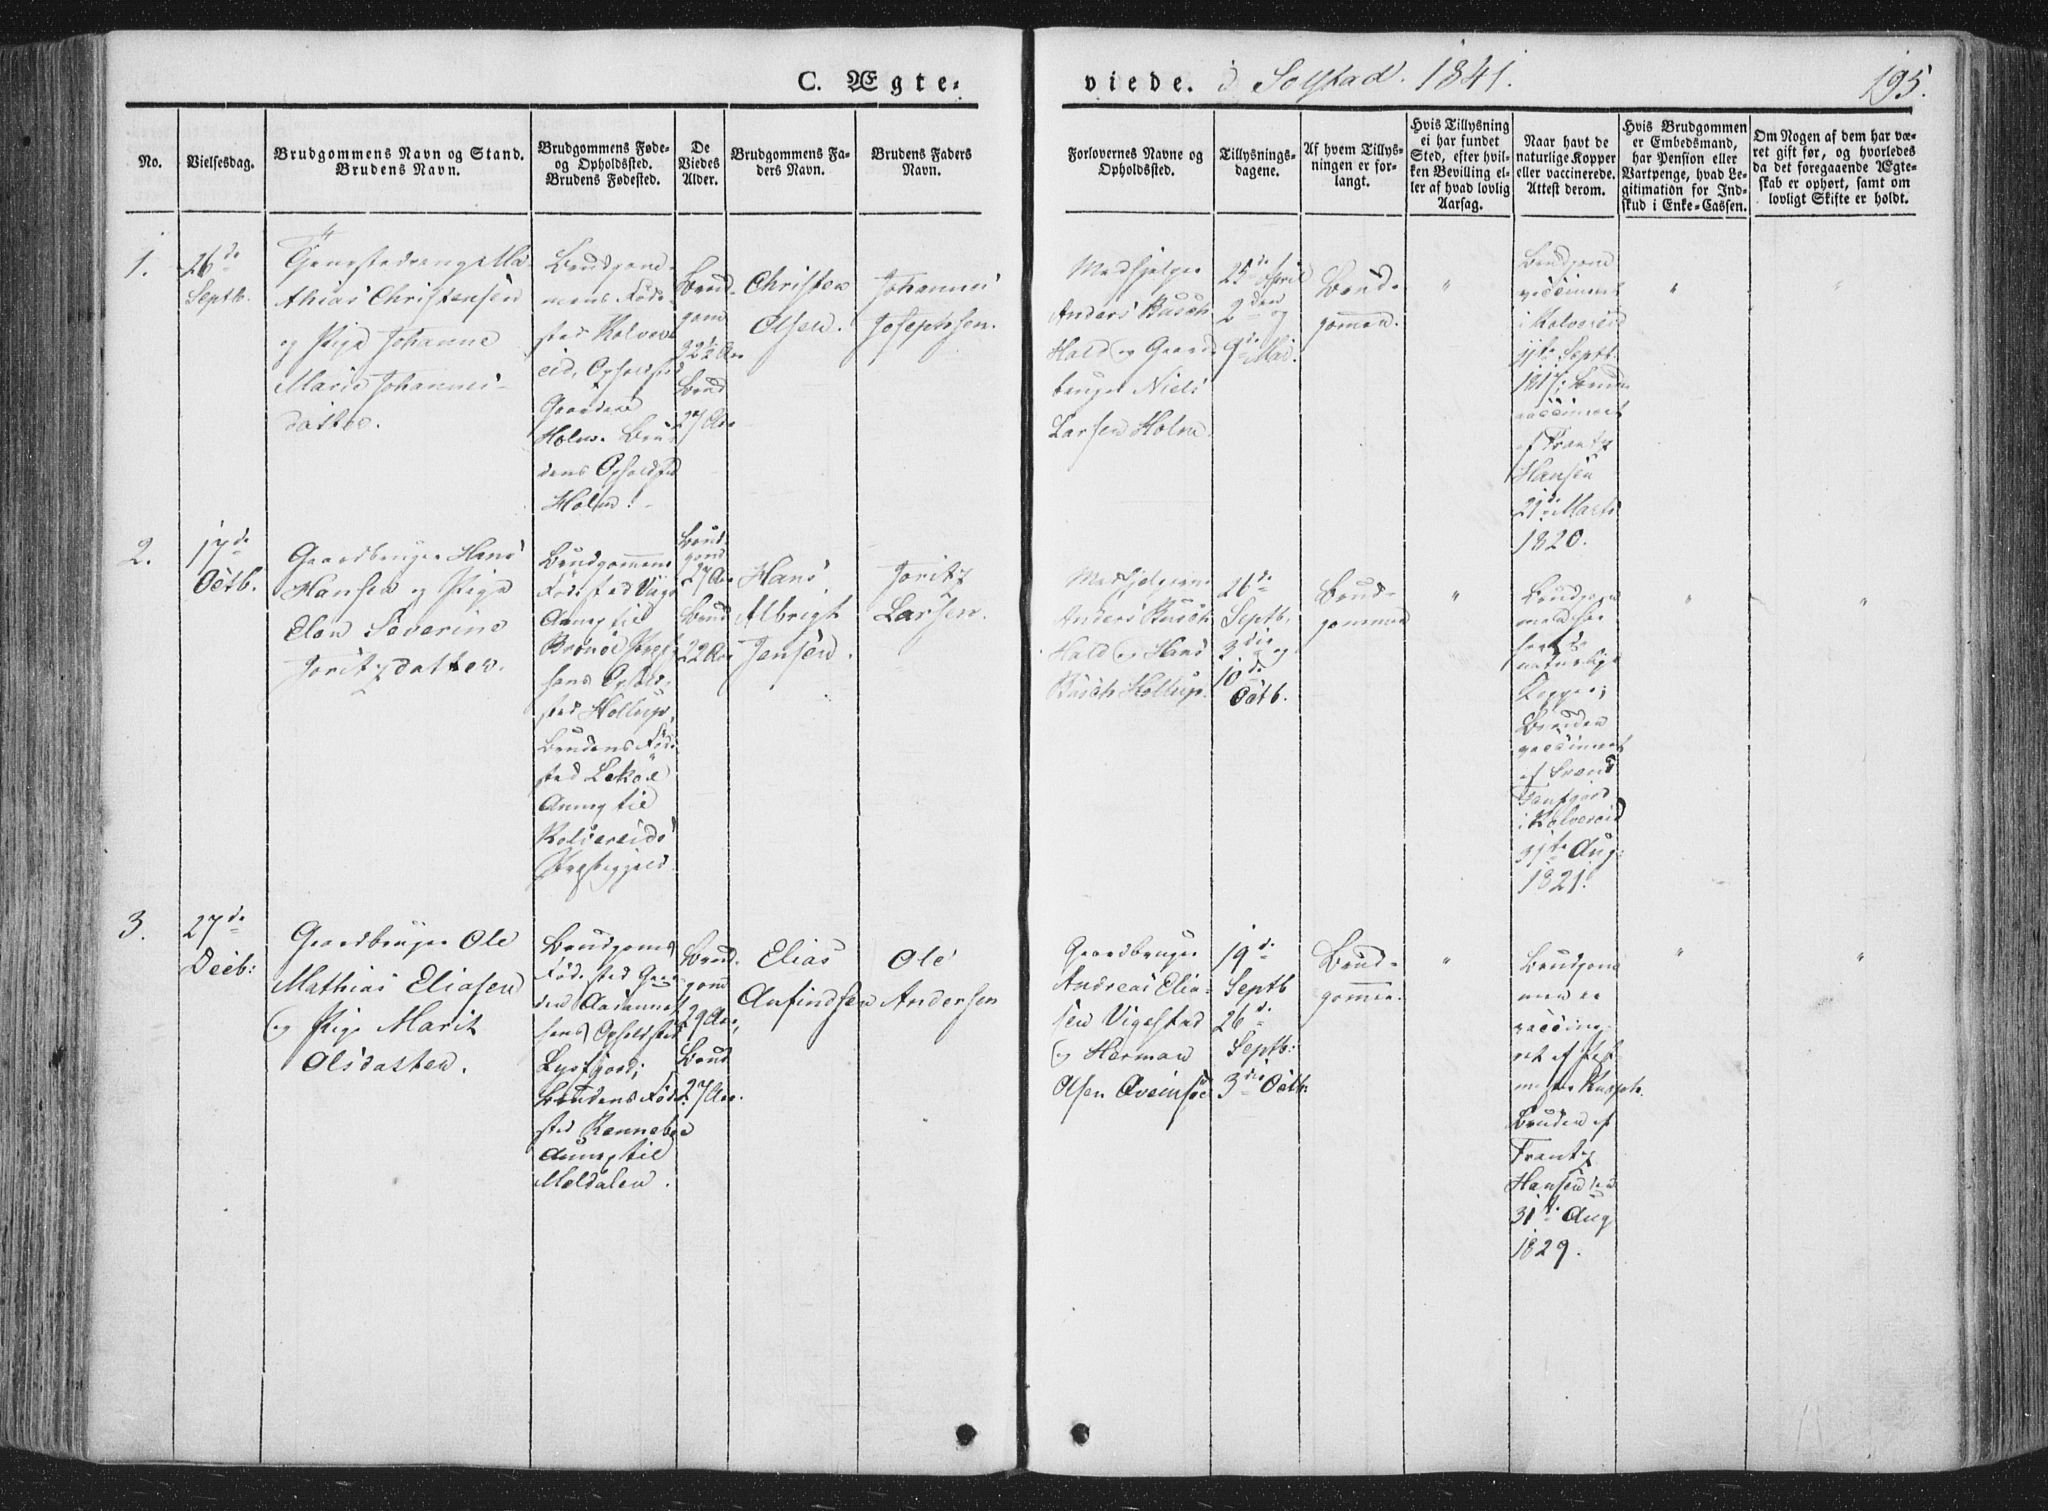 C. Ægte-
viede. i Solstad. 1841.
195.
No.
Vielsesdag.
Brudgommens Navn og Stand.
Brudens Navn.
Brudgommens Føde-
og Opholdssted.
Brudens Fødested.
De
Viedes
Alder.
Brudgommens Fa-
ders Navn.
Brudens Faders
Navn.
Forlovernes Navne og
Opholdssted.
Tillysnings-
dagene.
Af hvem Tillys-
ningen er for-
langt.
Hvis Tillysning
ei har fundet
Sted, efter hvil-
ken Bevilling el-
ler af hvad lovlig
Aarsag.
Naar havt de
naturlige Kopper
eller vaccinerede.
Attest derom.
Hvis Brudgommen
er Embedsmand,
har Pension eller
Vartpenge, hvad Le-
gitimation for Ind-
skud i Enke-Cassen.
Om Nogen af dem har væ-
ret gift før, og hvorledes
da det foregaaende Ægte-
skab er ophørt, samt om
lovligt Skifte er holdt.
1.
26de
Septb.
Christensen
og Pige Johanne
Marie Johannes-
datter.
Brudgom-
mens Føde-
sted Kolver
eid, Opholdsted
Gaarden
Holm. Bru-
dens Opholdsted
Holm!
Brud-
gom
32½ Aar
Brud
27 Aar
Christen
Olsen.
Johannes
Josephsen.
Medhjelper
Anders Busch
Hald og Gaard-
bruger Niels
Larsen Holm.
25de April
2den og
9de Mai.
Brud-
gommen.
"
Brudgom
vaccineret
i Kolvereid
11te Septb.
1817; Brud
vaccineret
af Frantz
Hansen
21de Marts
1820.
"
"
2.
17de
Octb.
Gaardbruger Hans
Hansen og Pige
Elen Severine
Joritzdatter.
Brudgommens
Fødested Vågø
Annex til
Brønøe Præst
Ophold-
sted Hollup,
Brudens Føde
sted Lekøe
Annex til
Kolvereids
Præstegjeld.
Brud-
gom
27 Aar
Brud
22 Aar
Hans
Albrigt
Jensen.
Joritz
Larsen.
Medhjelper
Anders Busch
Hald og Hans
Busch Hollup.
26de
Septb,
3die og
10de
Octb.
Brud-
gommen
"
naturlige
Kopper;
Bruden
vaccineret
af Svend
i Kolvereid
31te Aug:
1821.
"
"
3.
27de
Decb:
Gaardbruger Ole
Mathias Eliasen
og Pige Marit
Olsdatter.
Brudgoms
Fødested Gaar
den
Opholdsted
Lysfjord;
Brudens Føde
sted Renneboe
Annex til
Meldalen.
Brud-
gom
29 Aar,
Brud
27 Aar.
Elias
Anfindsen
Ole
Andersen
Gaardbruger
Andreas Elia-
sen Vigestad
og Herman
Olsen
19de
Septb
26de
Septb:
3die Octb.
Brud-
gommen.
"
Brudgom
men er
vaccine-
ret af
Bruden af
Frantz
Hansen den
31te Aug
1829.
"
"